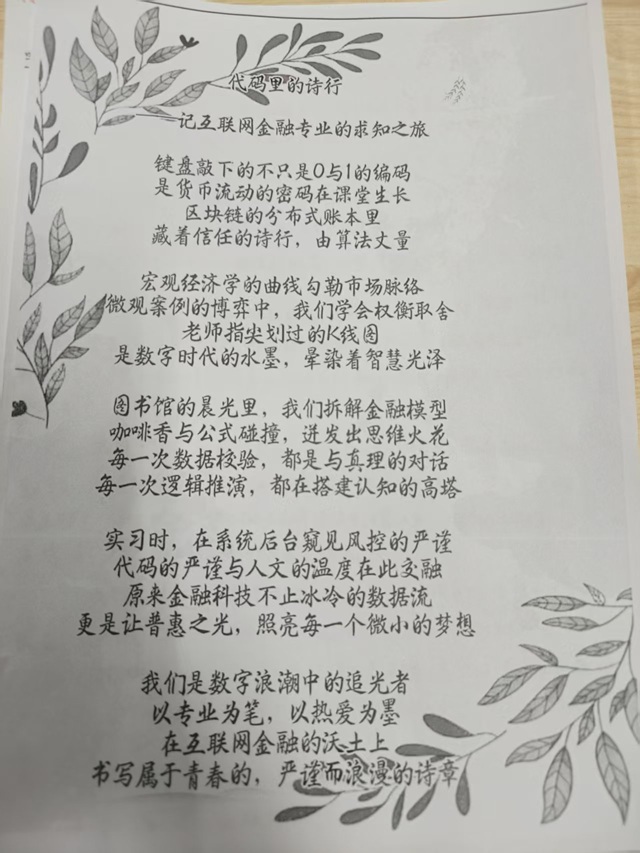 代码里的诗行
记互联网金融专业的求知之旅
键盘敲下的不只是0与1的编码
是货币流动的密码在课堂生长
区块链的分布式账本里
藏着信任的诗行，由算法丈量
宏观经济学的曲线勾勒市场脉络
微观案例的博弈中，我们学会权衡取舍
老师指尖划过的K线图
是数字时代的水墨，晕染着智慧光泽
图书馆的晨光里，我们拆解金融模型
咖啡香与公式碰撞，迸发出思维火花
每一次数据校验，都是与真理的对话
每一次逻辑推演，都在搭建认知的高塔
实习时，在系统后台窥见风控的严谨
代码的严谨与人文的温度在此交融
原来金融科技不止冰冷的数据流
更是让普惠之光，照亮每一个微小的梦想
我们是数字浪潮中的追光者
以专业为笔，以热爱为墨
在互联网金融的沃土上
书写属于青春的，严谨而浪漫的诗章